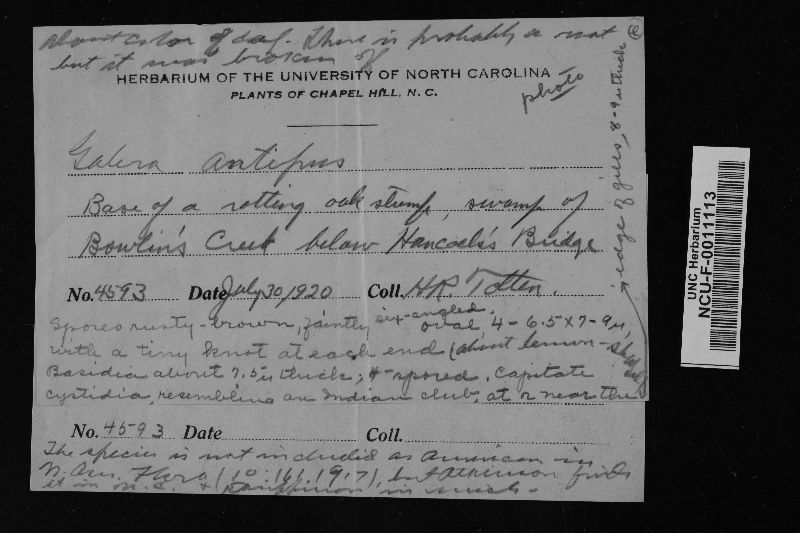 about color of cap. There is probably a root
but it was broken off
HERBARIUM OF THE UNIVERSITY OF NORTH CAROLINA
PLANTS OF CHAPEL HILL, N. C.
photo
Galera antipus
Base of a rotting oak stump, swamp of
Bowlin's Creek below Hancock's Bridge
No. 4593 Date July 30, 1920 Coll. H.R. Totten.
Spores rusty-brown, faintly six-angled,
oval 4-6.5 x 7-9 µ,
with a tiny knot at each end (about lemon-shaped)
Basidia about 7.5 µ thick; 4-spored. Capitate
cystidia, resembling an Indian club, at or near the
edge of gills, 8-9 µ thick
No. 4593 Date Coll.
The species is not included as American in
N. Am. Flora (10: 161, 1917), but Atkinson finds
it in N.C. & Kauffman in Mich.
UNC Herbarium
NCU-F-0011113